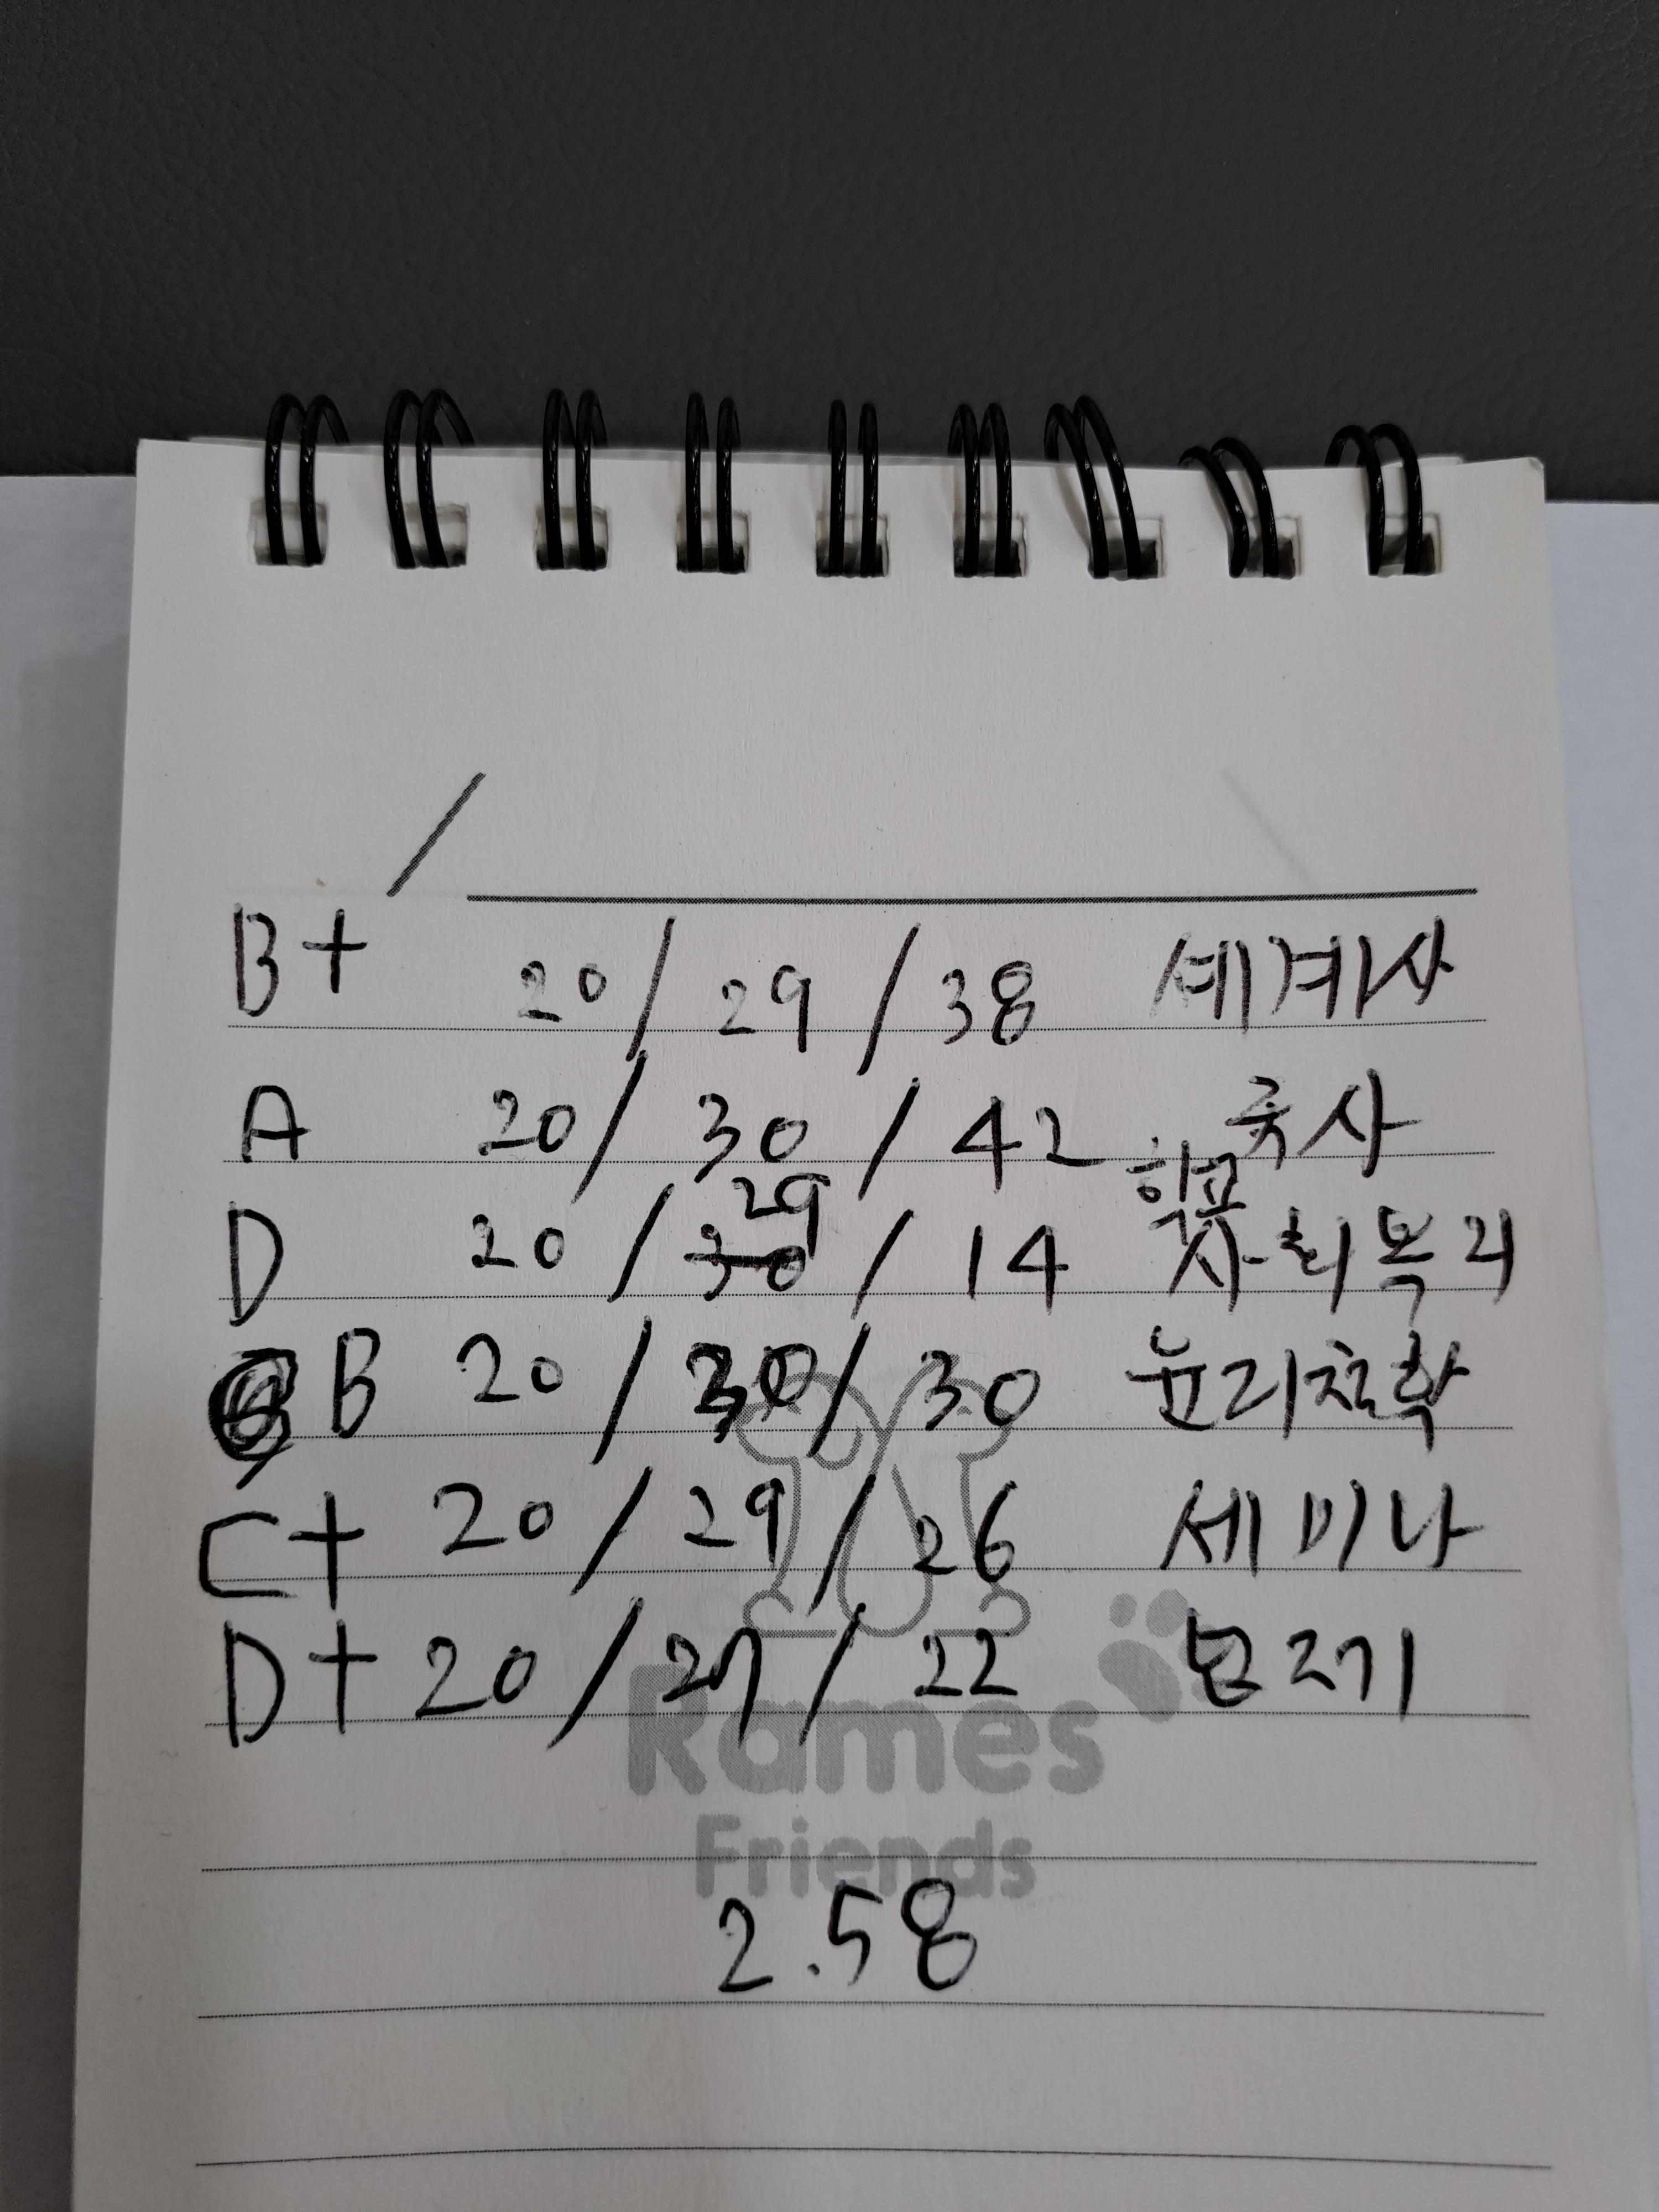 B+ 20 / 29 / 38 세계사
A 20 / 30 / 42 국사
D 20 / 29 / 14 학교사회복지
B 20 / 30 / 30 윤리철학
C+ 20 / 29 / 26 세미나
D+ 20 / 27 / 22
Rames
Friends
2.58